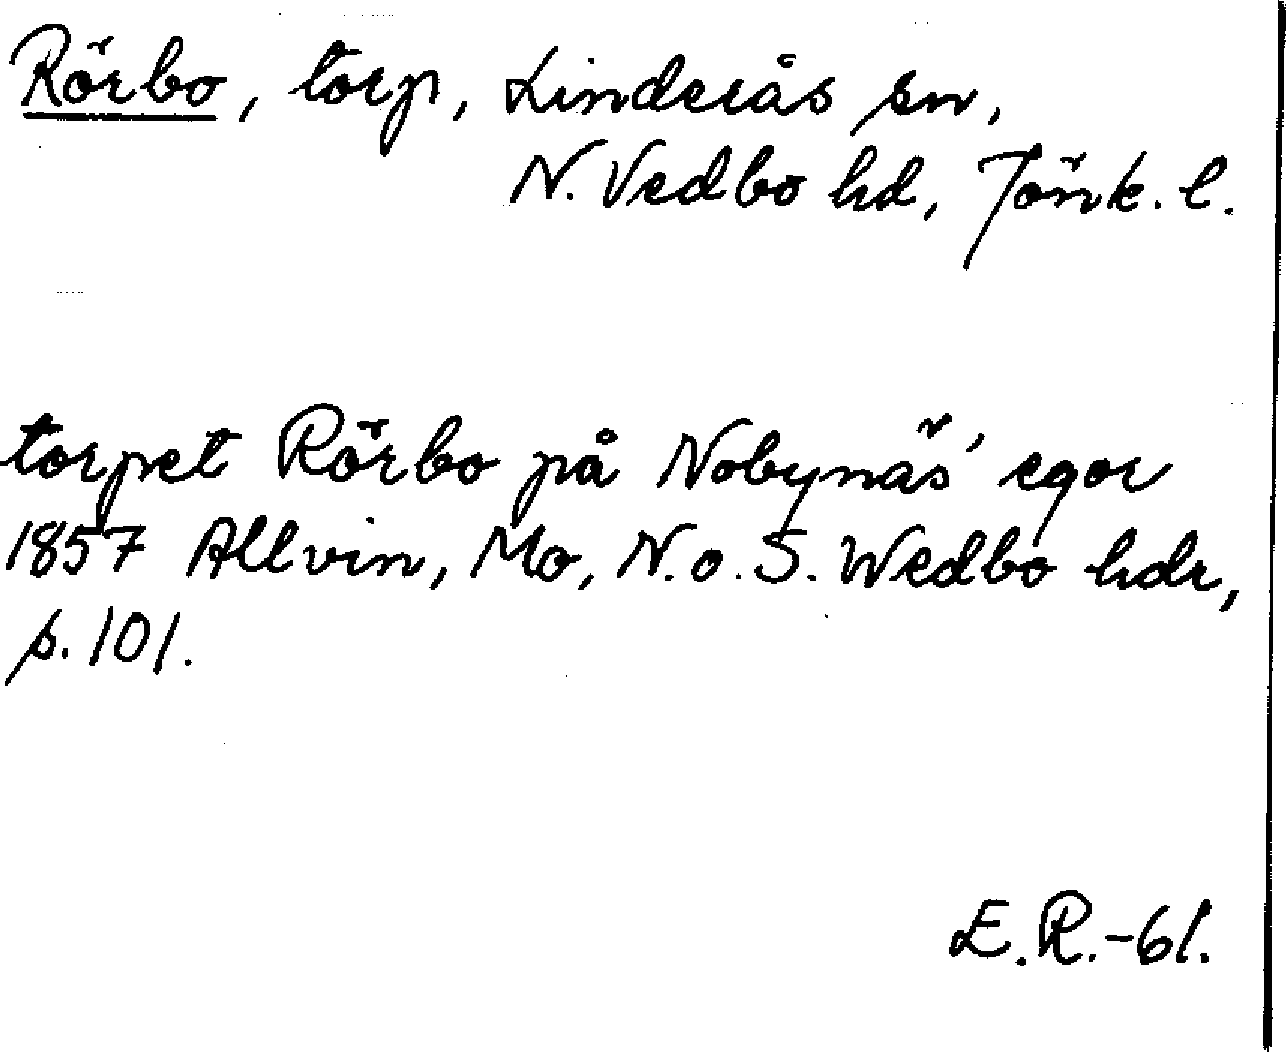 Rörbo, torp, Linderås sn,
N. Vedbo hd, Jönk. l.
torpet Rörbo på Nobynäs' egor
1857 Allvin, Mo, N. o. S. Wedbo hdr,
s. 101.
E. R. -61.